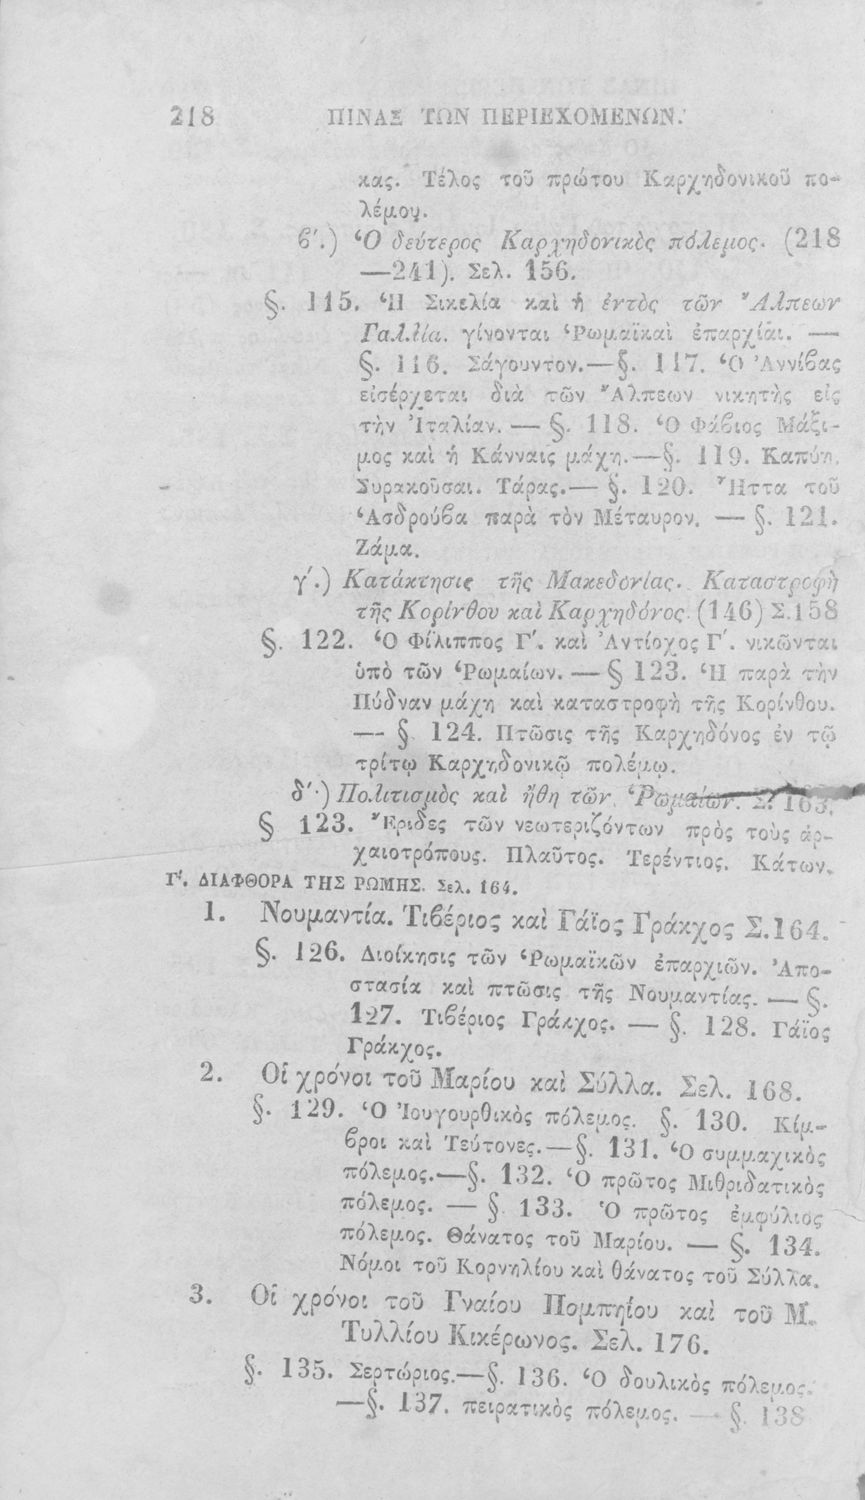 218 ΠΙΝΑΞ ΤΩΝ ΠΕΡΙΕΧΟΜΕΝΩΝ.
κας. Τέλος τοῦ πρώτου Καρχηδονικοῦ πο-
λέμου.
ϐ΄.) Ὁ δεύτερος Καρχηδονικὸς πόλεμος. (218
—241). Σελ. 156.
§. 115. Ἡ Σικελία καὶ ἡ ἐντὸς τῶν Ἄλπεων
Γαλλία. γίνονται Ῥωμαϊκαὶ ἐπαρχίαι. —
§. 116. Σάγουντον.—§. 117. Ὁ Ἀννίϐας
εἰσέρχεται διὰ τῶν Ἄλπεων νικητὴς εἰς
τὴν Ἰταλίαν. — §. 118. Ὁ Φάϐιος Μάξι-
μος καὶ ἡ Κάνναις μάχη.—§. 119. Καπύη,
Συρακοῦσαι. Τάρας.— §. 120. Ἧττα τοῦ
Ἀσδρούϐα παρὰ τὸν Μέταυρον. — §. 121.
Ζάμα.
γ΄.) Κατάκτησις τῆς Μακεδονίας. Καταστροφὴ
τῆς Κορίνθου καὶ Καρχηδόνος. (146) Σ.158
§. 122. Ὁ Φίλιππος Γ΄. καὶ Ἀντίοχος Γ΄. νικῶνται
ὑπὸ τῶν Ῥωμαίων. — § 123. Ἡ παρὰ τὴν
Πύδναν μάχη καὶ καταστροφὴ τῆς Κορίνθου.
— §. 124. Πτῶσις τῆς Καρχηδόνος ἐν τῷ
τρίτῳ Καρχηδονικῷ πολέμῳ.
δ΄.) Πολιτισμὸς καὶ ἤθη τῶν Ῥωμαίων. Σ. 163.
§ 123. Ἔριδες τῶν νεωτεριζόντων πρὸς τοὺς ἀρ-
χαιοτρόπους. Πλαῦτος. Τερέντιος. Κάτων.
Γ΄. ΔΙΑΦΘΟΡΑ ΤΗΣ ΡΩΜΗΣ. Σελ. 164.
1. Νουμαντία. Τιϐέριος καὶ Γάϊος Γράκχος Σ.164.
§. 126. Διοίκησις τῶν Ῥωμαϊκῶν ἐπαρχιῶν. Ἀπο-
στασία καὶ πτῶσις τῆς Νουμαντίας. — §.
127. Τιϐέριος Γράκχος. — §. 128. Γάϊος
Γράκχος.
2. Οἱ χρόνοι τοῦ Μαρίου καὶ Σύλλα. Σελ. 168.
§. 129. Ὁ Ἰουγουρθικὸς πόλεμος. §. 130. Κίμ-
ϐροι καὶ Τεύτονες.—§. 131. Ὁ συμμαχικὸς
πόλεμος.—§. 132. Ὁ πρῶτος Μιθριδατικὸς
πόλεμος. — § 133. Ὁ πρῶτος ἐμφύλιος
πόλεμος. Θάνατος τοῦ Μαρίου. — §. 134.
Νόμοι τοῦ Κορνηλίου καὶ θάνατος τοῦ Σύλλα.
3. Οἱ χρόνοι τοῦ Γναίου Πομπηΐου καὶ τοῦ Μ.
Τυλλίου Κικέρωνος. Σελ. 176.
§. 135. Σερτώριος.—§. 136. Ὁ δουλικὸς πόλεμος.
—§. 137. πειρατικὸς πόλεμος. — §. 138